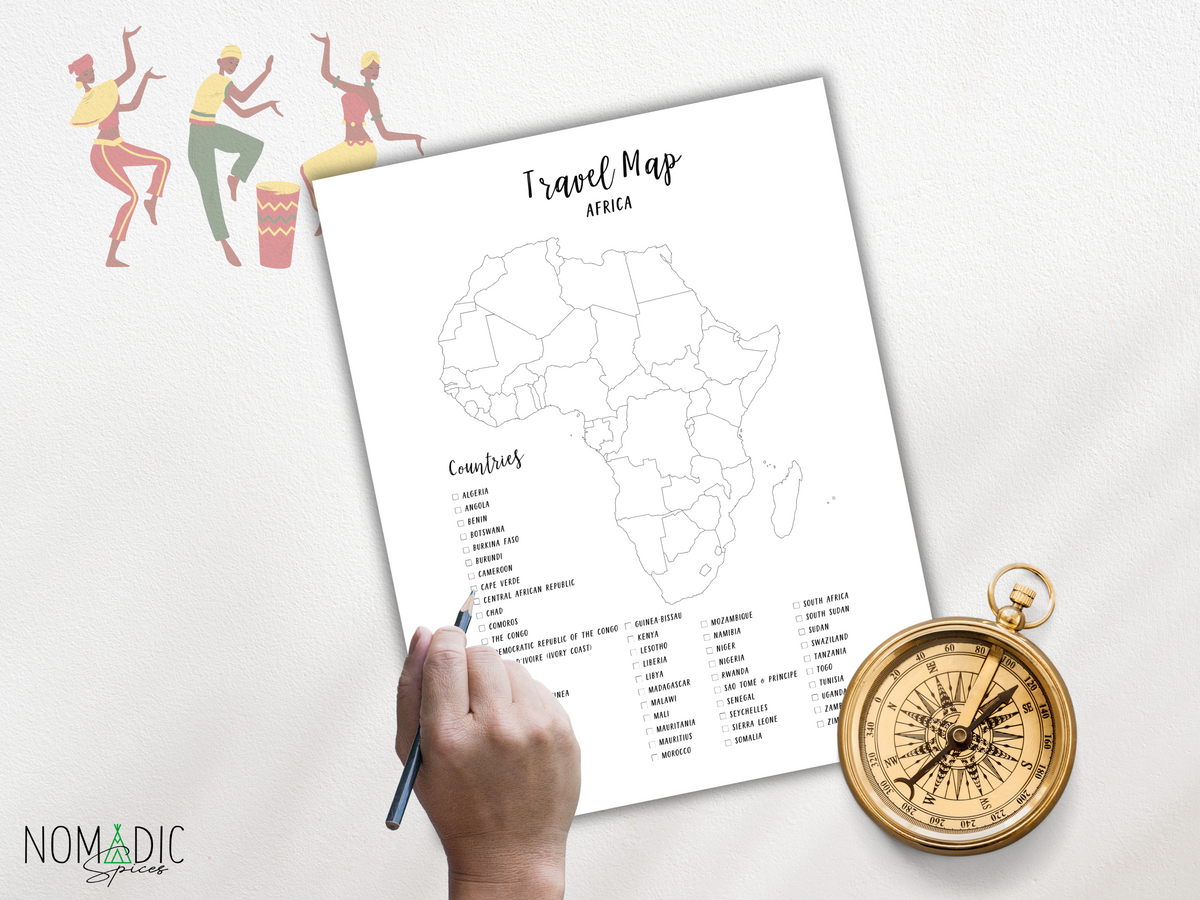 Travel Map
AFRICA
Countries
ALGERIA
ANGOLA
BENIN
BOTSWANA
BURKINA FASO
BURUNDI
CAMEROON
CAPE VERDE
CENTRAL AFRICAN REPUBLIC
CHAD
COMOROS
THE CONGO
DEMOCRATIC REPUBLIC OF THE CONGO
D'IVOIRE (IVORY COAST)
GUINEA-BISSAU
KENYA
LESOTHO
LIBERIA
LIBYA
MADAGASCAR
MALAWI
MALI
MAURITANIA
MAURITIUS
MOROCCO
MOZAMBIQUE
NAMIBIA
NIGER
NIGERIA
RWANDA
SAO TOME & PRINCIPE
SENEGAL
SEYCHELLES
SIERRA LEONE
SOMALIA
SOUTH AFRICA
SOUTH SUDAN
SUDAN
SWAZILAND
TANZANIA
TOGO
TUNISIA
UGANDA
N
NE
S
SW
W
NW
0
20
40
60
80
100
120
140
160
180
200
220
240
260
280
300
320
340
NOMADIC
Spices